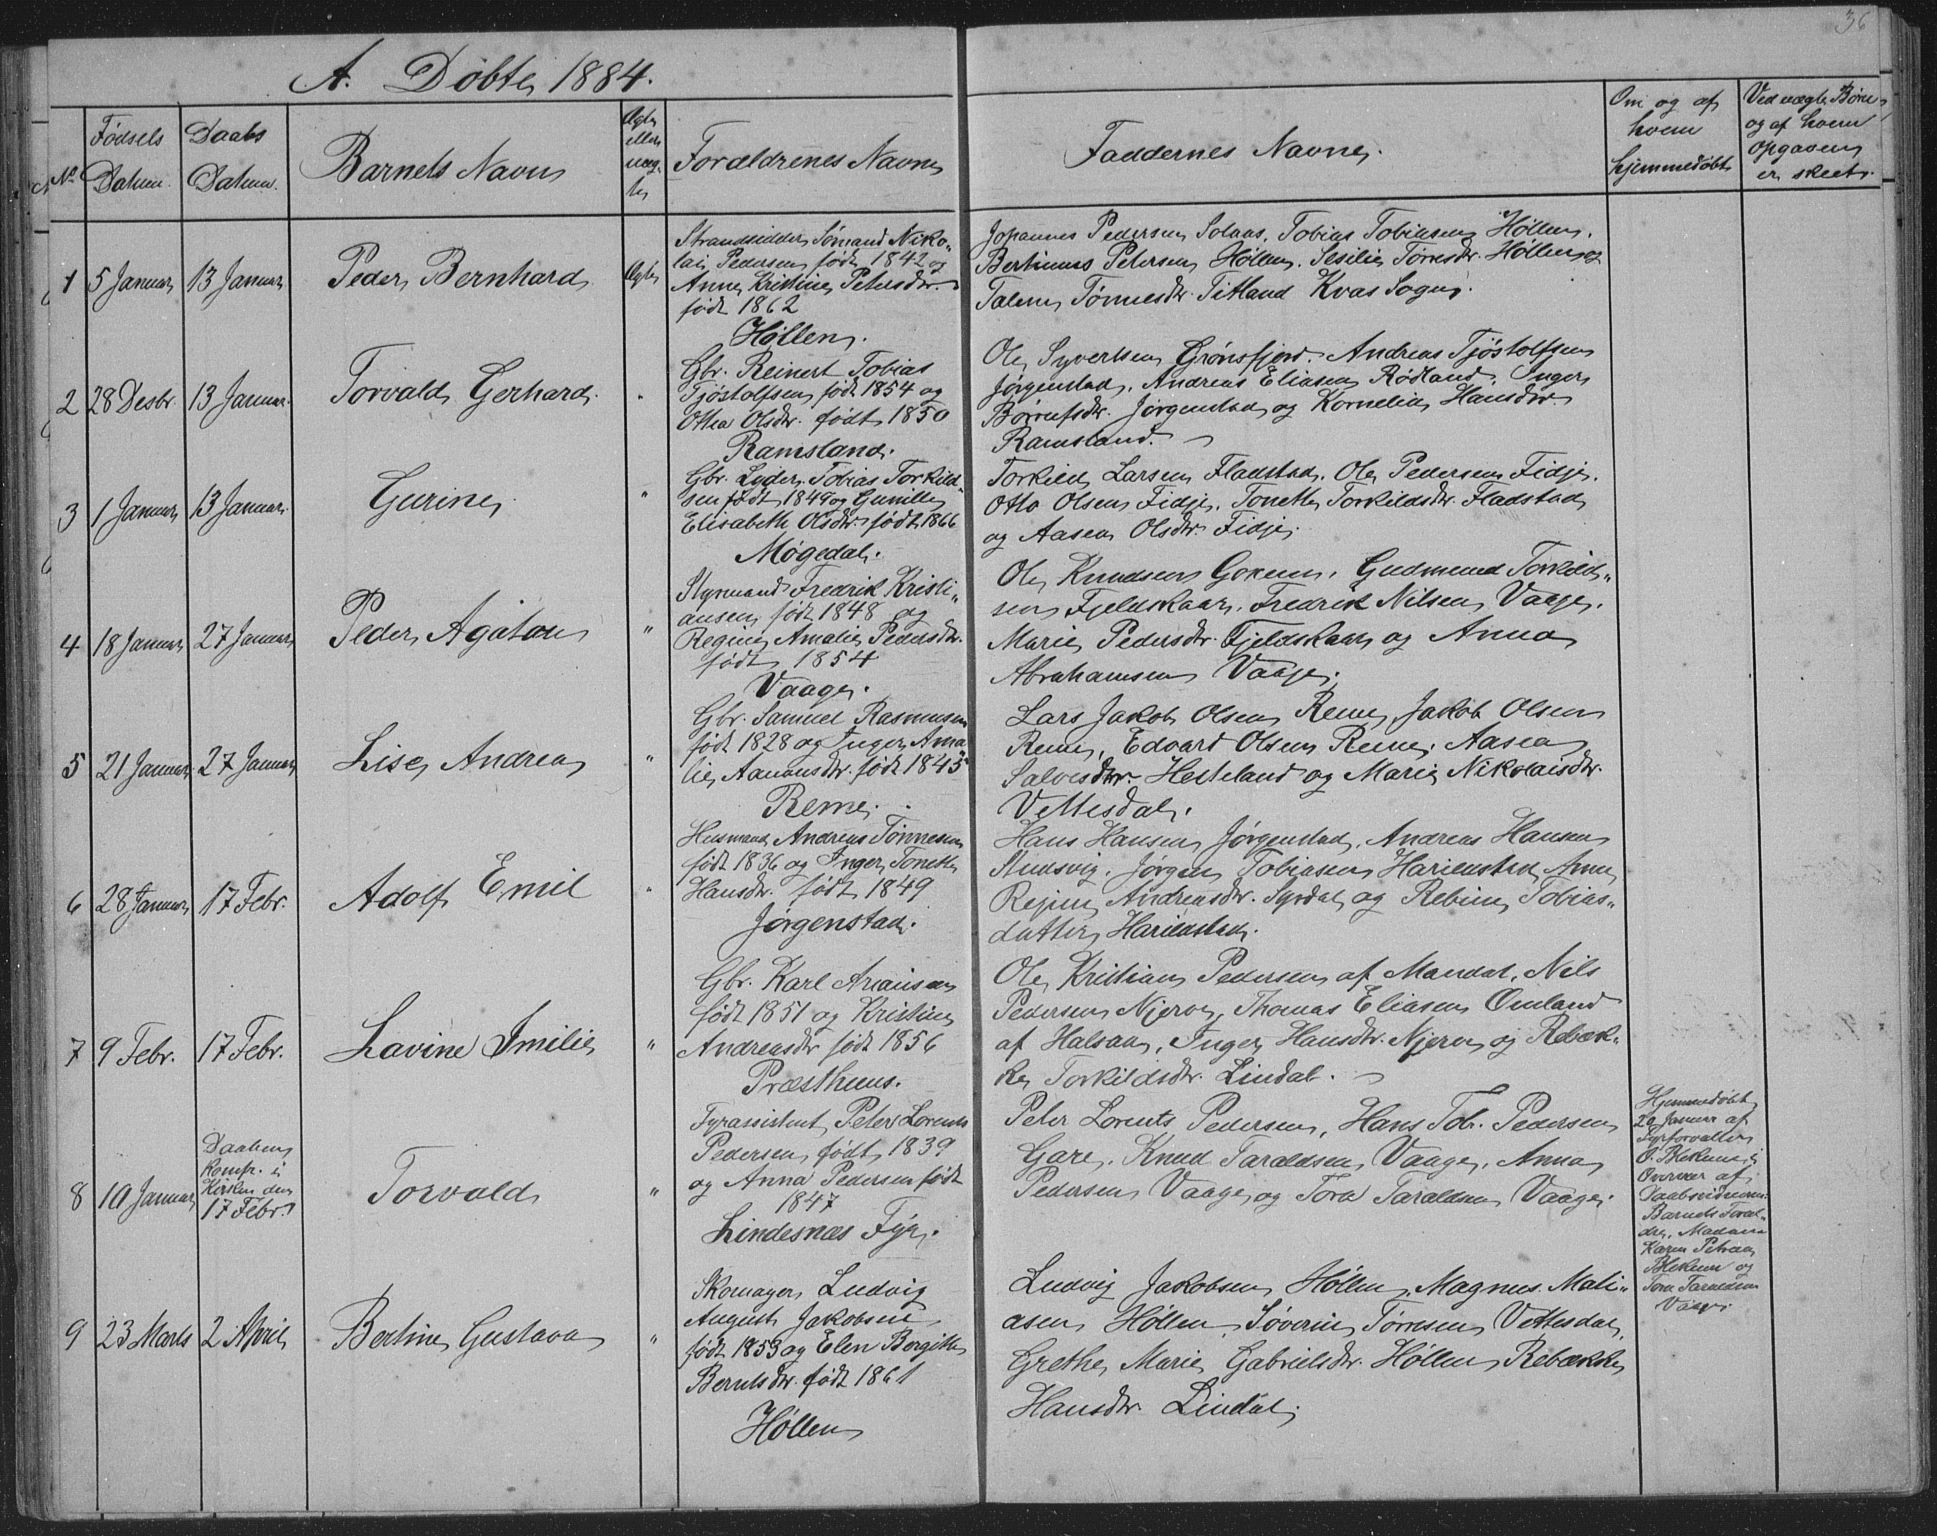 36
A. Døbte 1884.
No. Fødsels Datum. Daabs Datum. Barnets Navn Ægte eller uægte Forældrenes Navne Faddernes Navne. Om og af hvem hjemmedøbt Ved uægte Børn og af hvem Opgaven er skeet.
1 5 Januar 13 Januar Peder Bernhard Ægte
Strandsidder Sømand Niko-
lai Pedersen født 1842 og
Anne Kristine Petersdtr.
født 1862
Høllen.
Johannes Pedersen Solaas, Tobias Tobiasen Høllen.
Bertinius Petersen Høllen. Sesilie Tørresdr. Høllen og
Talene Tønnesdtr. Titland Kvas Sogn.
2 28 Desbr. 13 Januar. Torvald Gerhard. "
Gbr. Reinert Tobias
Tjøstolfsen født 1854 og
Ottea Olsdtr. født 1850
Ramsland.
Ole Syvertsen Grønsfjord. Andreas Tjøstolfsen
Jørgenstad, Andreas Eliasen Rødland. Inger
Jørgenstad og Kornelia Hansdtr.
Ramsland.
3 1 Januar 13 Januar. Gurine "
Gbr. Lyder Tobias Torkild-
sen født 1849 og Gunille
Elisabeth Olsdtr. født 1866
Møgedal.
Torkild Larsen Fladstad. Ole Pedersen Fidje.
Otto Olsen Fidje. Tonette Torkildsdtr. Fladstad
og Aasen Olsdtr. Fidje.
4 18 Januar 27 Januar Peder Agaton "
Styrmand Fredrik Kristi-
ansen født 1848 og
Regine Amalie Pedersdtr.
født 1854
Vaage.
Ole Knudsen. Gudmund Torkild-
sen Fjeldskaar. Fredrik Nilsen Vaage.
Marie Pedersdtr. Fjeldskaar og Anna
Abrahamsen Vaage.
5 21 Januar 27 Januar Lise Andrea "
Gbr. Samuel Rasmusen
født 1828 og Inger Ama-
lie Aanonsdtr. født 1845
Reme.
Lars Jakob Olsen Reme, Jakob Olsen
Reme, Edvard Olsen Reme. Aasen
Salvesdtr. Hesteland og Marie Nikolaisdtr.
Vettesdal.
6 28 Januar 17 Febr. Adolf Emil "
Husmand Andreas Tønnesen
født 1836 og Inger Tonette
Hansdtr. født 1849
Jørgenstad.
Hans Hansen Jørgenstad, Andreas Hansen
Studsvig. Jørgen Tobiasen Harienstad, Anne
Regine Andreasdtr. Syrdal og Rebine Tobias-
datter Harienstad.
7 9 Febr. 17 Febr. Lavine Imilie "
Gbr. Karl Ariansen
født 1851 og Kristine
Andreasdtr født 1856
Præsthuus.
Ole Kristian Pedersen af Mandal, Nils
Pedersen Njerve, Thomas Eliasen Omland
af Halsaa, Inger Hansdtr. Njerve og Rebæk-
ke Torkildsdtr. Lindal.
8 10 Januar Daaben komp. i Kirken den 17 Febr. Torvald "
Fyrassistent Peter Lorents
Pedersen født 1839
og Anna Pedersen født
1847
Lindesnæs Fyr.
Peter Lorents Pedersen, Hans Tob. Pedersen
Gare. Knud Taraldsen Vaage, Anna
Pedersen Vaage og Tora Taraldsen Vaage.
Hjemmedøbt
20 Januar af
Fyrforvalter
O. Blekum i
Overvær af
Daabsvidnerne:
Barnets Foræl-
dre, Madame
Karen Petrea
Blekum og
Tore Taraldsen
Vaage.
9 23 Marts 2 April Bertine Gustava "
Skomager Ludvig
August Jakobsen
født 1853 og Elen Bergitte
Berntsdtr. født 1861
Høllen
Ludvig Jakobsen Høllen, Magnus Mati-
asen Høllen, Søverin Tørresen Vettesdal,
Grethe Marie Gabrielsdtr. Høllen Rebække
Hansdtr. Lindal.